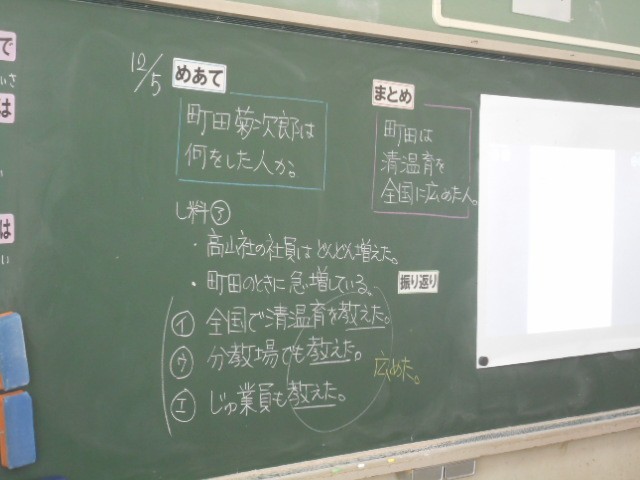 12/5
めあて
町田菊次郎は
何をした人か。
し料㋐
・高山社の社員はどんどん増えた。
・町田のときに急増している。
㋑ 全国で清温育を教えた。
㋒ 分教場でも教えた。
㋓ じゅ業員も教えた。
広めた。
まとめ
町田は
清温育を
全国に広めた人。
振り返り
で
は
は